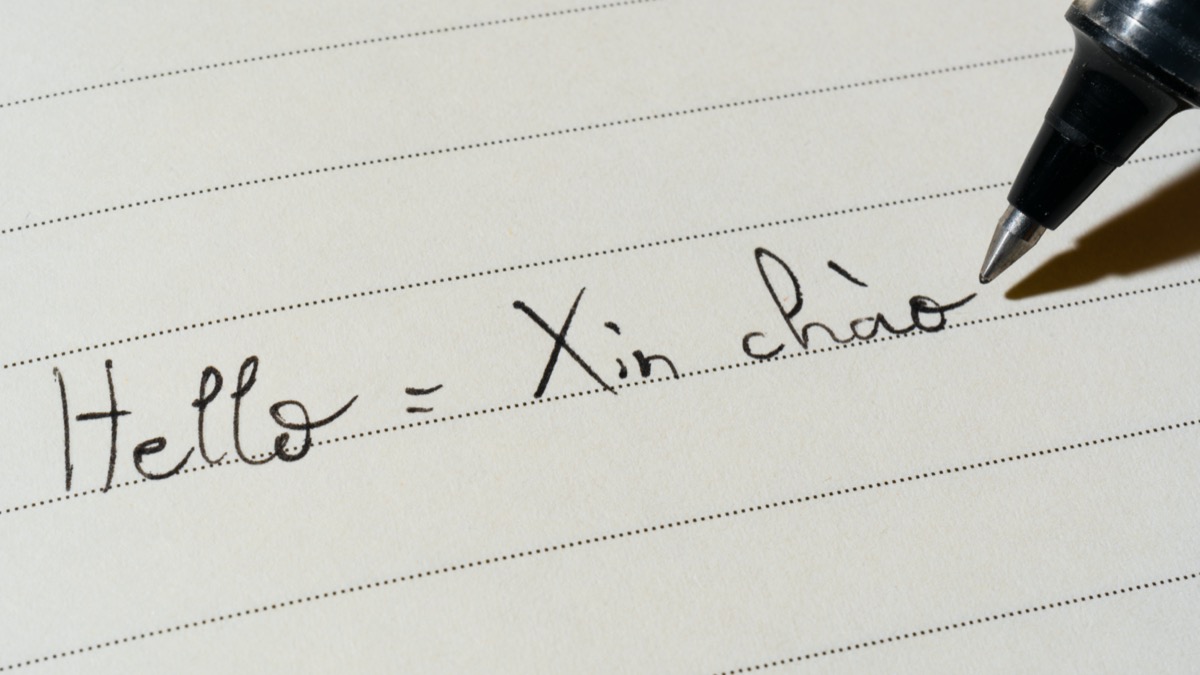 Hello = Xin chào